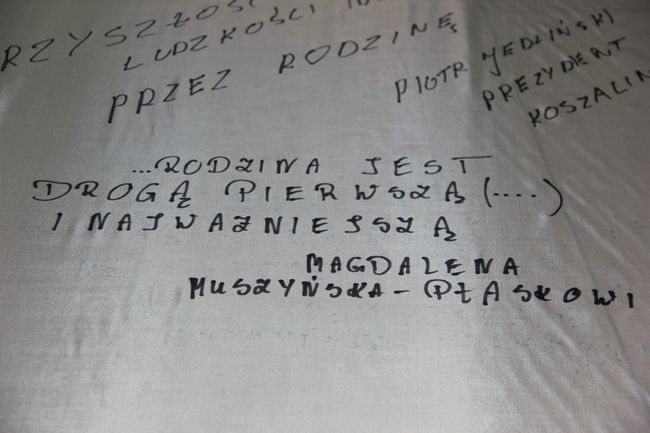 RZYSZŁOŚ
LUDZKOŚCI
PRZEZ RODZINĘ
PIOTR JEDLIŃSKI
PREZYDENT
KOSZALIN
...RODZINA JEST
DROGĄ PIERWSZĄ (....)
I NAJWAŻNIEJSZĄ
MAGDALENA
MUSZYŃSKA - PŁASKOWI